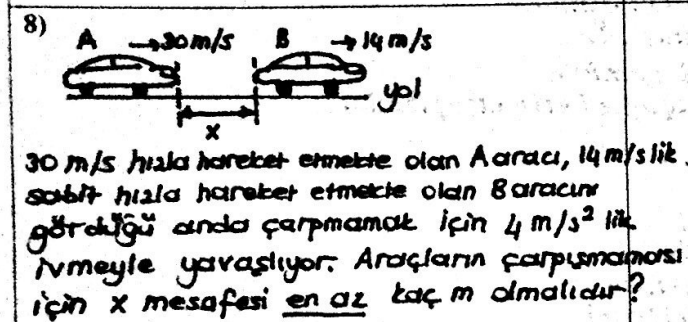 8)
A →30m/s B →14m/s
yol
x
30 m/s hızla hareket etmekte olan A aracı, 14 m/s lik
sabit hızla hareket etmekte olan B aracını
gördüğü anda çarpmamak için 4 m/s² lik
ivmeyle yavaşlıyor. Araçların çarpışmaması
için x mesafesi en az kaç m olmalıdır?